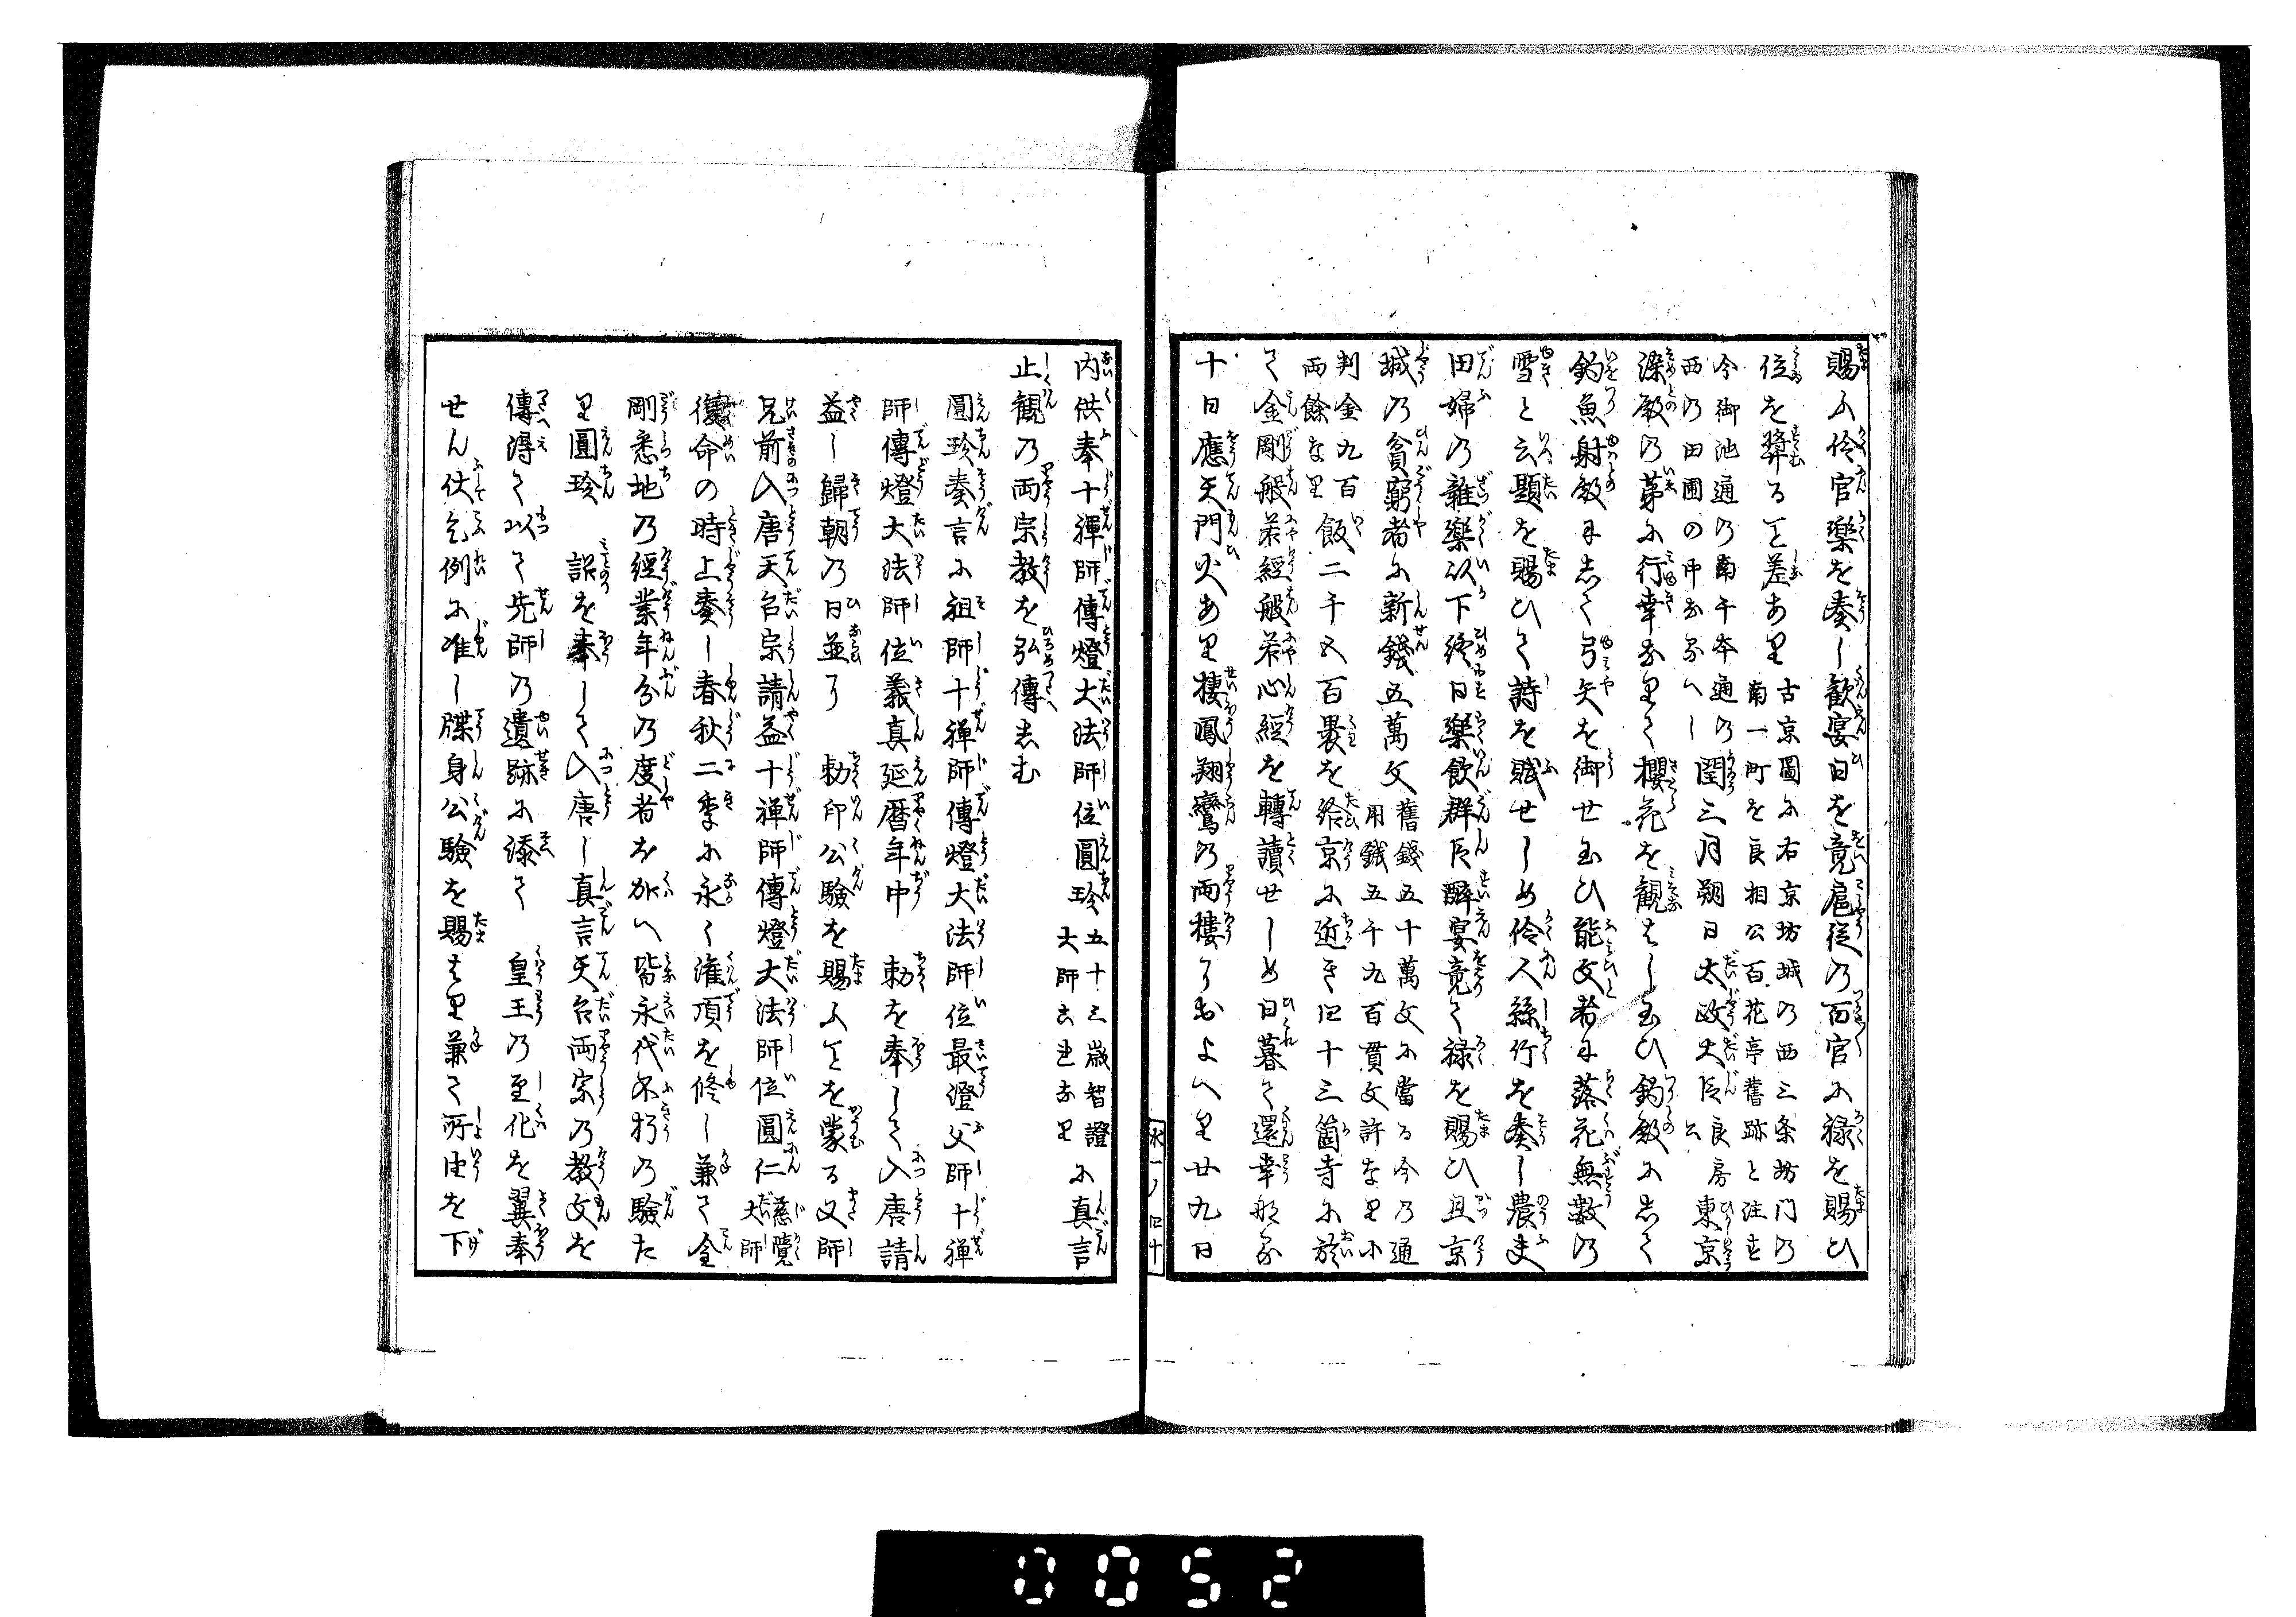 賜ふ伶官樂を奏し歡宴日を竟扈従の百官に禄を賜ひ
位を奨ること差あり古京圖に右京坊城の西三条坊門の
南一町を良相公百花亭舊跡と注す
今御池通の南千本通の
西の田圃の中なるへし閏三月朔日太政大臣良房公東京
染殿の第に行幸なりて櫻花を観はし玉ひ釣殿にして
釣魚射殿にして弓矢を御せ玉ひ能文者に落花無數の
雪と云題を賜ひて詩を賦せしめ伶人絲竹を奏し農夫
田婦の雜樂以下終日樂飲群臣醉宴竟て禄を賜ひ且京
城の貧窮者に新錢五萬文舊錢五十萬文に當る今の通
用錢五千九百貫文許なり小
判金九百
両餘なり飯二千五百裹を給京に近き四十三箇寺に於
て金剛般若經般若心經を轉讀せしめ日暮て還幸ある
十日應天門火あり棲鳳翔鸞の両樓におよへり廿九日
永一ノ四十
内供奉十禪師傳燈大法師位圓珍五十三歳智證
大師云是なりに真言
止觀の両宗教を弘傳しむ
圓珍奏言に祖師十禅師傳燈大法師位最澄父師十禅
師傳燈大法師位義真延暦年中　勅を奉して入唐請
益し歸朝の日並に　勅印公驗を賜ふことを蒙る又師
兄前入唐天台宗請益十禅師傳燈大法師位圓仁慈覺
大師
復命の時上奏し春秋二季に永く潅頂を修し兼て金
剛悉地の經業年分の度者を加へ皆永代不朽の驗た
り圓珍　詔を奉して入唐し真言天台両宗の教文を
傳得て以て先師の遺跡に添て　皇王の至化を翼奉
せん伏乞例に准し牒身公驗を賜はり兼て所由を下